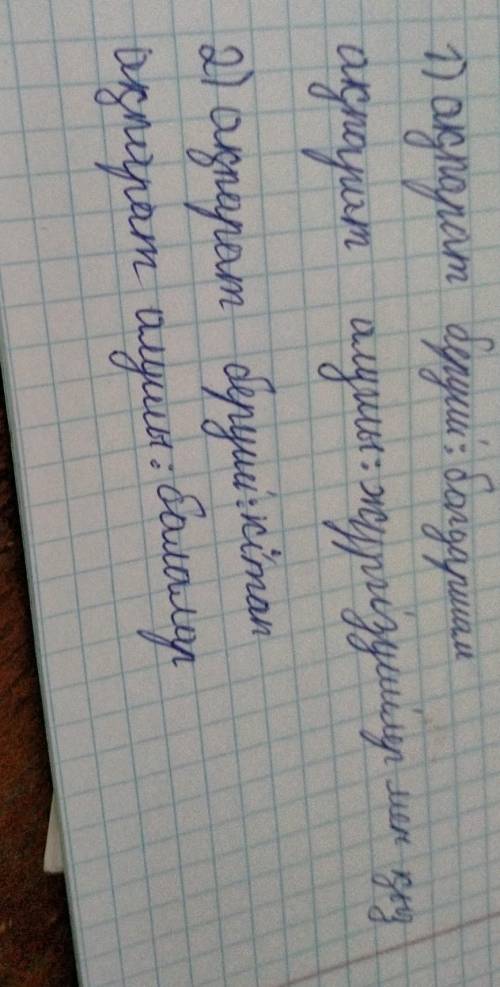 1) ақпарат беруші: бағдаршам
ақпарат алушы: жүргізушілер мен қыз
2) ақпарат беруші: кітап
ақпарат алушы: балалар